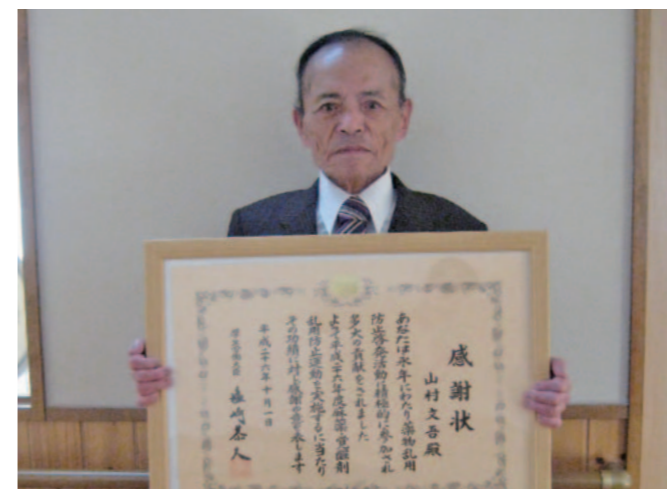 感謝状
山村文吾殿
あなたは永年にわたり薬物乱用
防止啓発活動に積極的に参加され
多大の貢献をされました
よって平成二十六年度麻薬・覚醒剤
乱用防止運動を実施するに当たり
その功績に対し感謝の意を表します
平成二十六年十月一日
厚生労働大臣